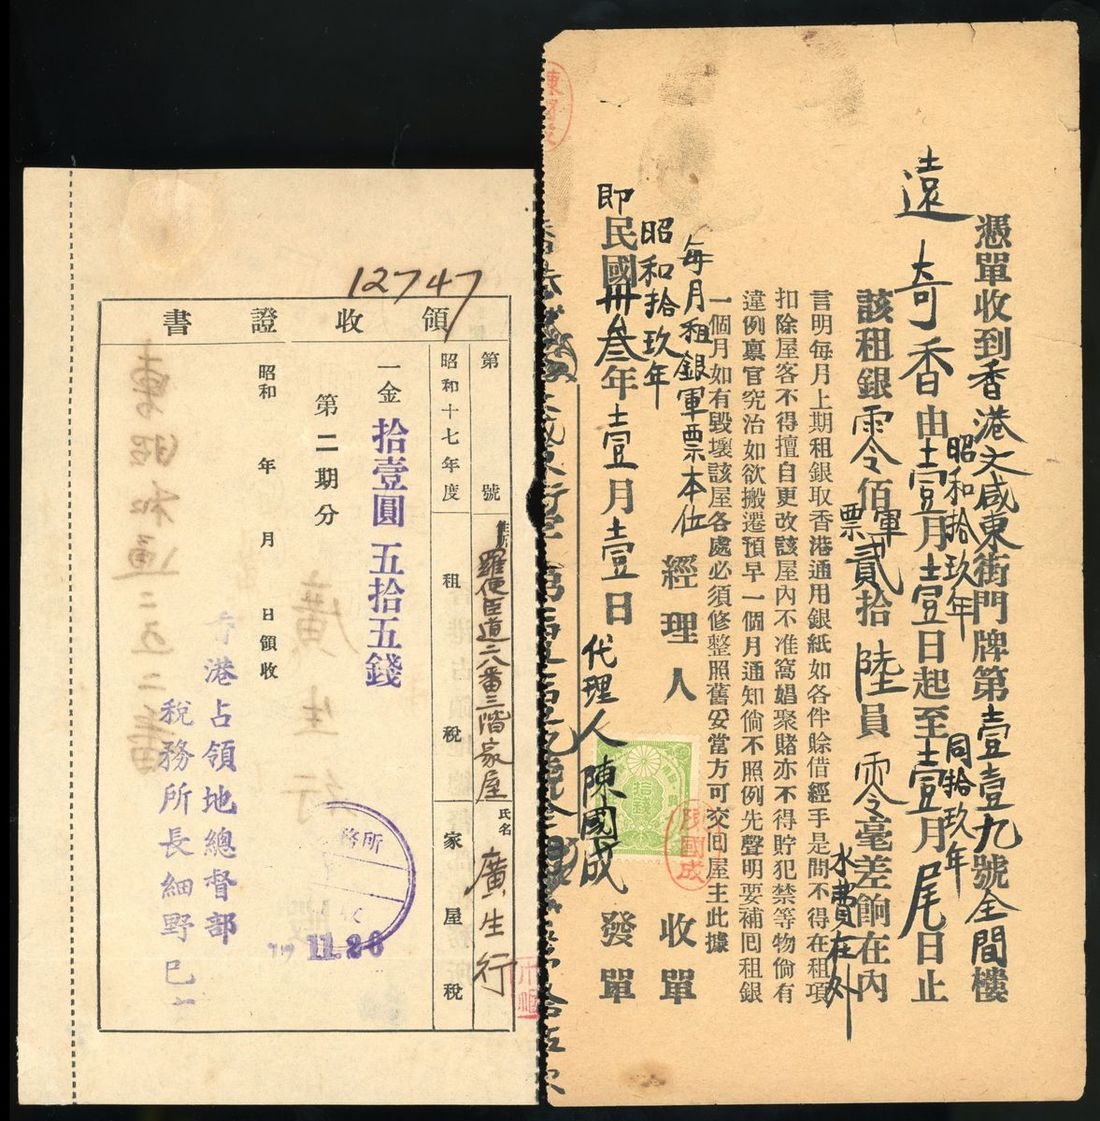 憑單收到香港大咸東街門牌第壹壹九號全間樓
遠奇香由昭和拾玖年壹月壹日起至同拾玖年壹月尾日止
該租銀零佰軍票貳拾陸員零令毫差餉在內
水費在外
言明每月上期租銀取香港通用銀紙如各件賒借經手是問不得在租項
扣除屋客不得擅自更改該屋內不准窩娼聚賭亦不得貯犯禁等物倘有
違例禀官究治如欲搬遷預早一個月通知倘不照例先聲明要補囘租銀
一個月如有毀壞該屋各處必須修整照舊妥當方可交囘屋主此據
每月租銀軍票本位
經理人 收單
昭和拾玖年
即民國卅叁年壹月壹日 發單
代理人陳國成
拾錢
陳國成
12747
領收證書
第 號
羅便臣道二八番三階家屋
氏名 廣生行
昭和十七年度 租稅 家屋稅
一金 拾壹圓五拾五錢
第二期分
昭和 年 月 日領收
香港占領地總督部
稅務所長細野
務所
收
11.26